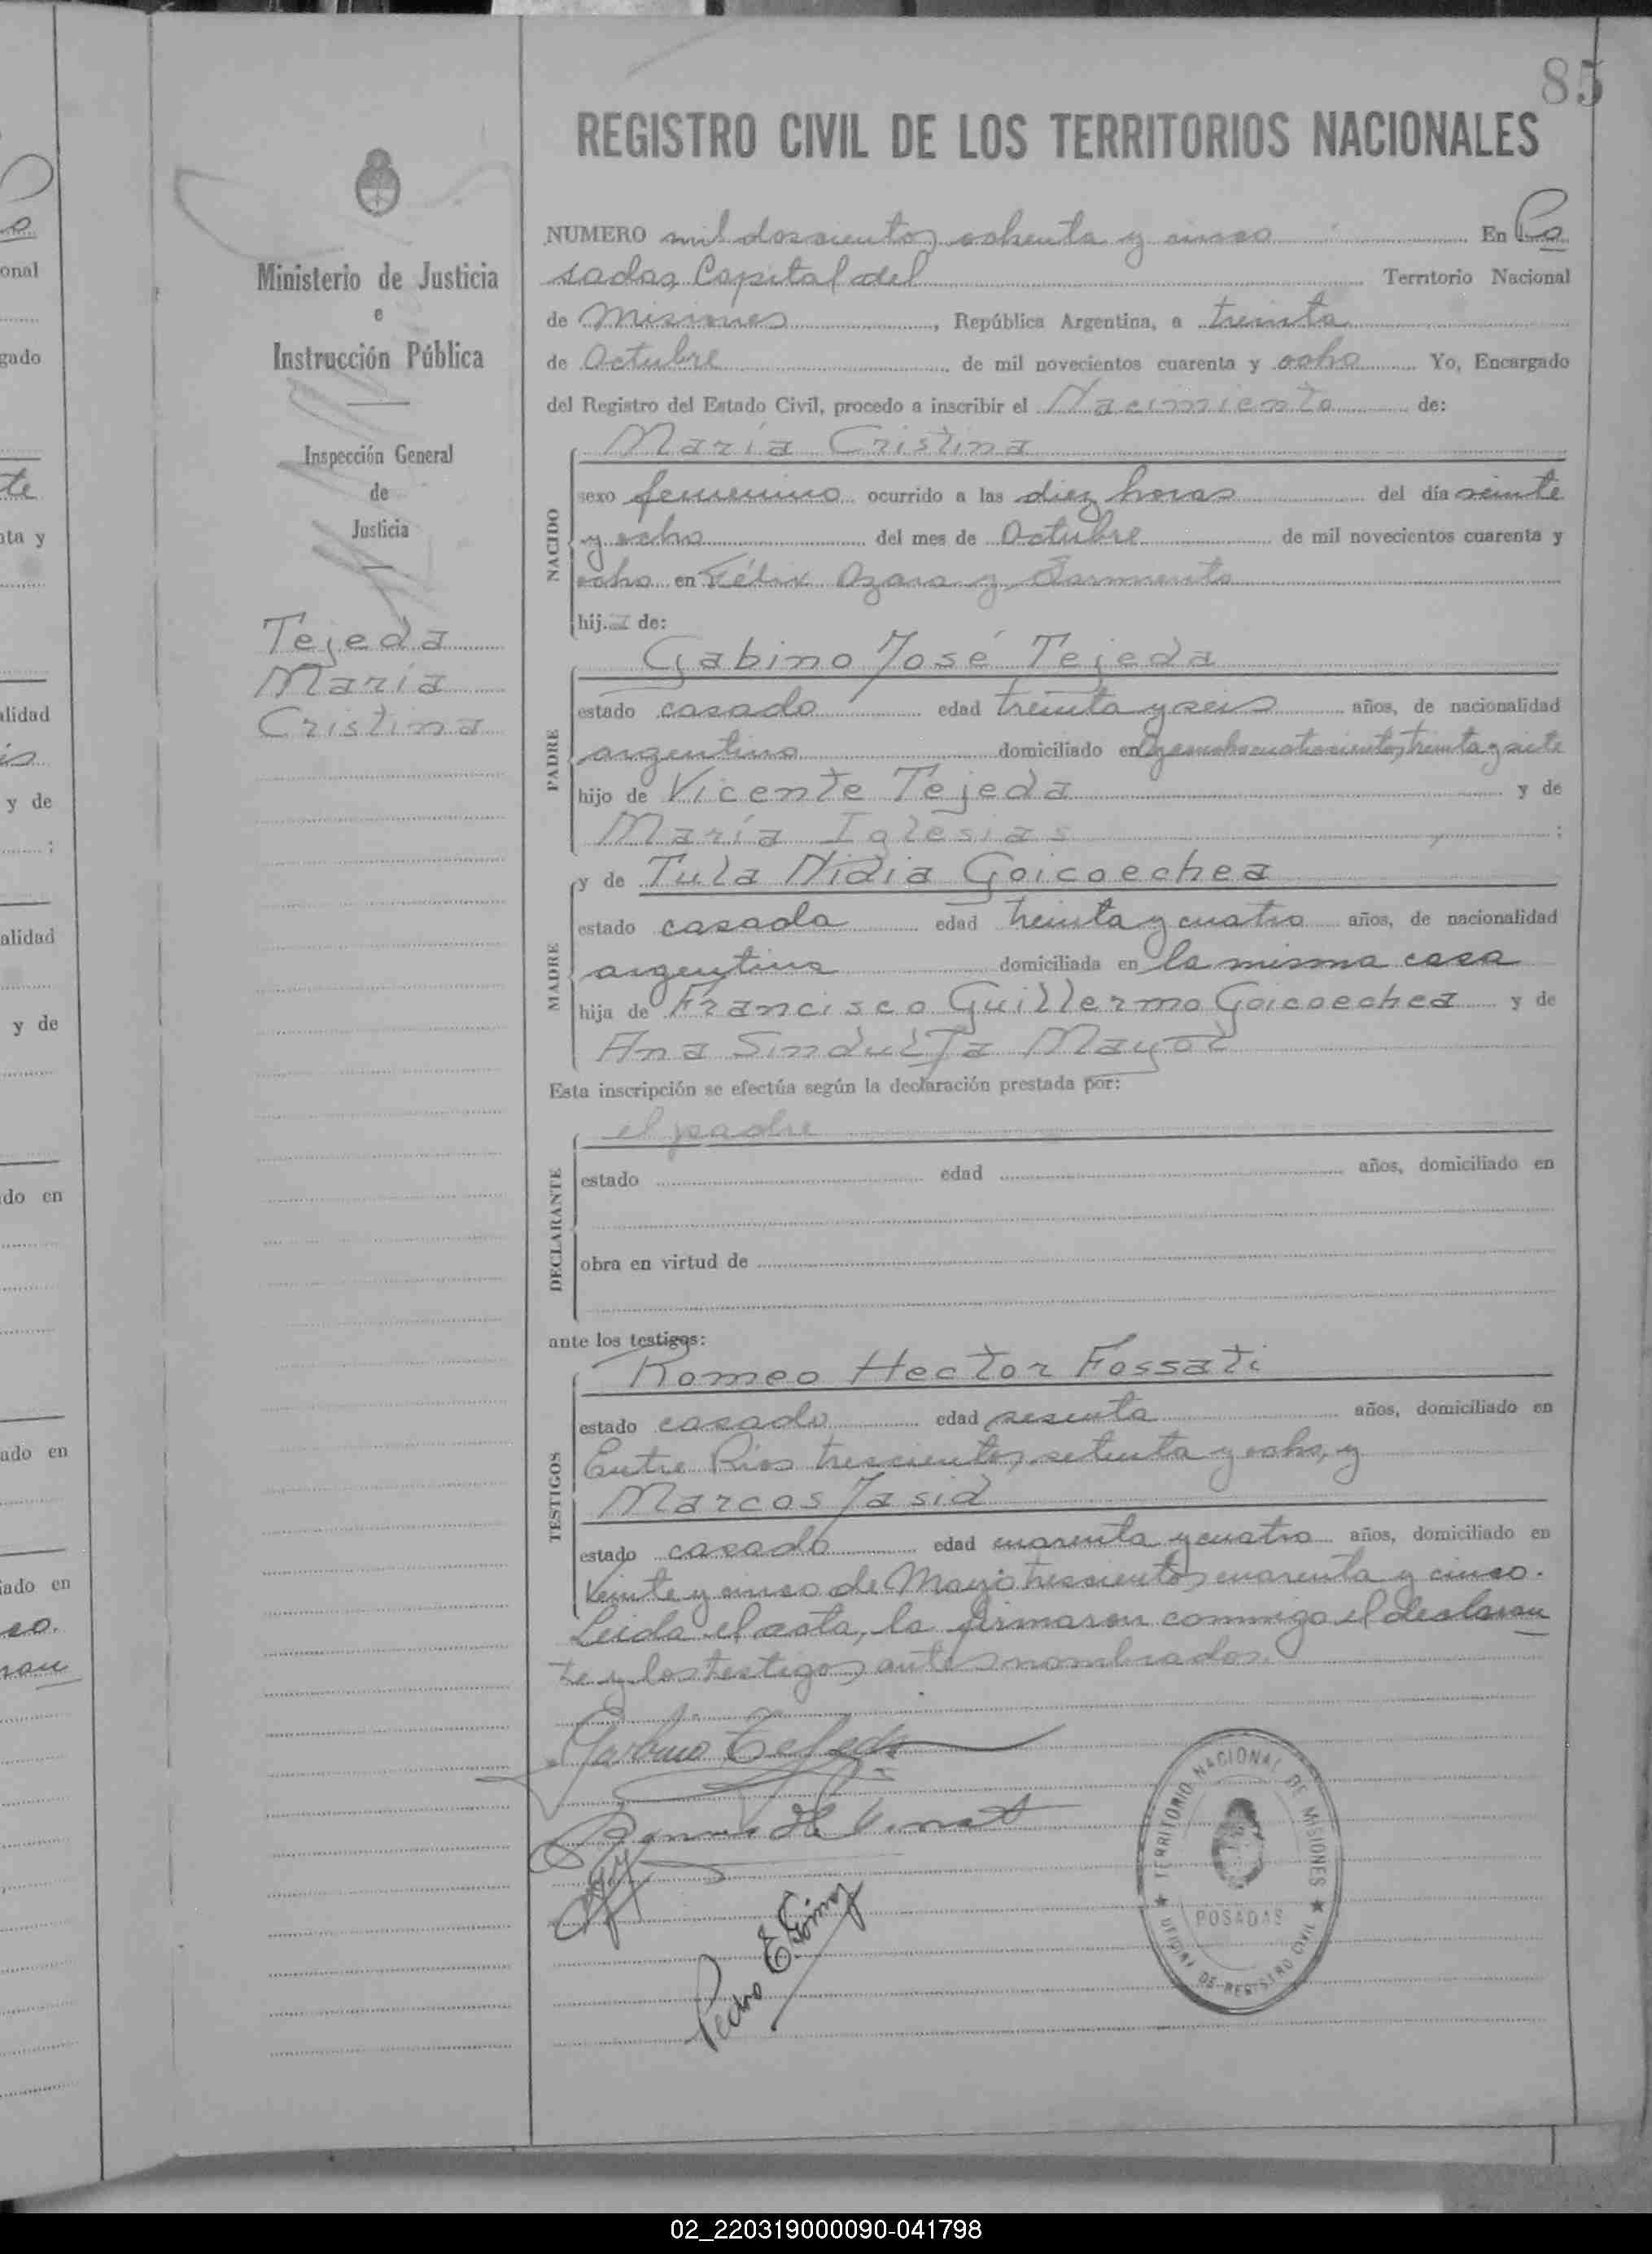 85
REGISTRO CIVIL DE LOS TERRITORIOS NACIONALES
NUMERO mil doscientos ochenta y cinco En Po
sadas, Capital del Territorio Nacional
de Misiones, República Argentina, a treinta
de Octubre de mil novecientos cuarenta y ocho Yo, Encargado
del Registro del Estado Civil, procedo a inscribir el Nacimiento de:
Ministerio de Justicia
e
Instrucción Pública
Inspección General
de
Justicia
Tejeda
María
Cristina
NACIDO
María Cristina
sexo femenino ocurrido a las diez horas del día veinte
y ocho del mes de Octubre de mil novecientos cuarenta y
ocho en Félix Azara y Sarmiento
hij.a de:
PADRE
Gabino José Tejeda
estado casado edad treinta y seis años, de nacionalidad
argentino domiciliado en cuatrocientos treinta y siete
hijo de Vicente Tejeda y de
María Iglesias :
MADRE
y de Tula Nidia Goicoechea
estado casada edad treinta y cuatro años, de nacionalidad
argentina domiciliada en la misma casa
hija de Francisco Guillermo Goicoechea y de
Ana Sindulfa Mayol
Esta inscripción se efectúa según la declaración prestada por:
DECLARANTE
el padre
estado edad años, domiciliado en
obra en virtud de
ante los testigos:
TESTIGOS
Romeo Hector Fossati
estado casado edad sesenta años, domiciliado en
Entre Ríos trescientos setenta y ocho, y
Marcos Jasid
estado casado edad cuarenta y cuatro años, domiciliado en
Veinte y cinco de Mayo trescientos cuarenta y cinco.
Leida el acta, la firmaron conmigo el declaran
te y los testigos antes nombrados.
Gabino Tejeda
Pedro E. Gómez
TERRITORIO NACIONAL DE MISIONES
POSADAS
OFICINA DE REGISTRO CIVIL
onal
gado
te
nta y
alidad
is
y de
:
alidad
y de
do en
ado en
iado en
co.
ran
02_220319000090-041798